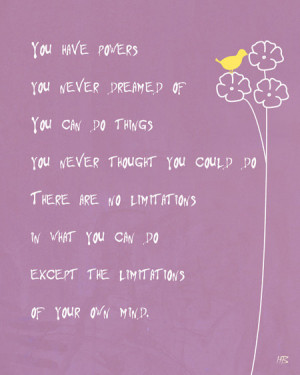 You have powers
you never dreamed of
You can do things
you never thought you could do
There are no limitations
in what you can do
except the limitations
of your own mind.